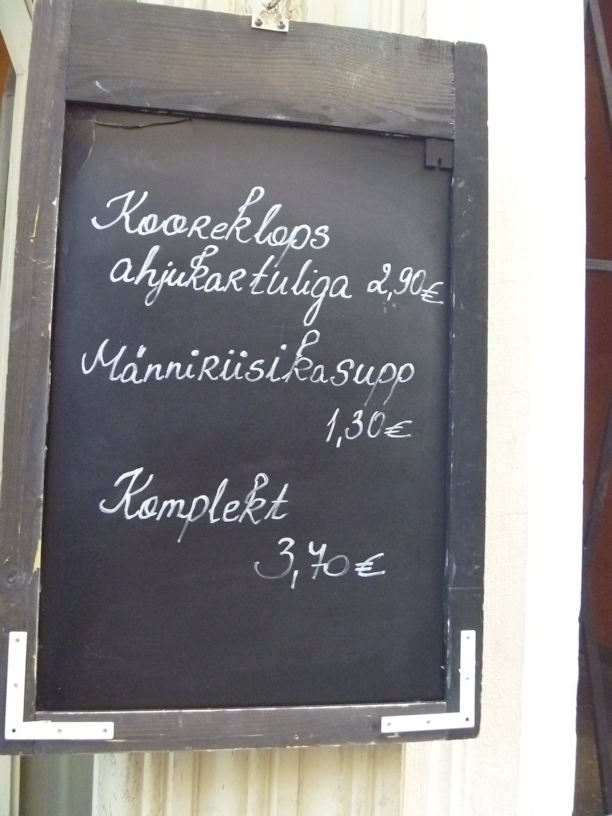 Kooreklops
ahjukartuliga 2,90€
Männiriisikasupp
1,30€
Komplekt
3,70€